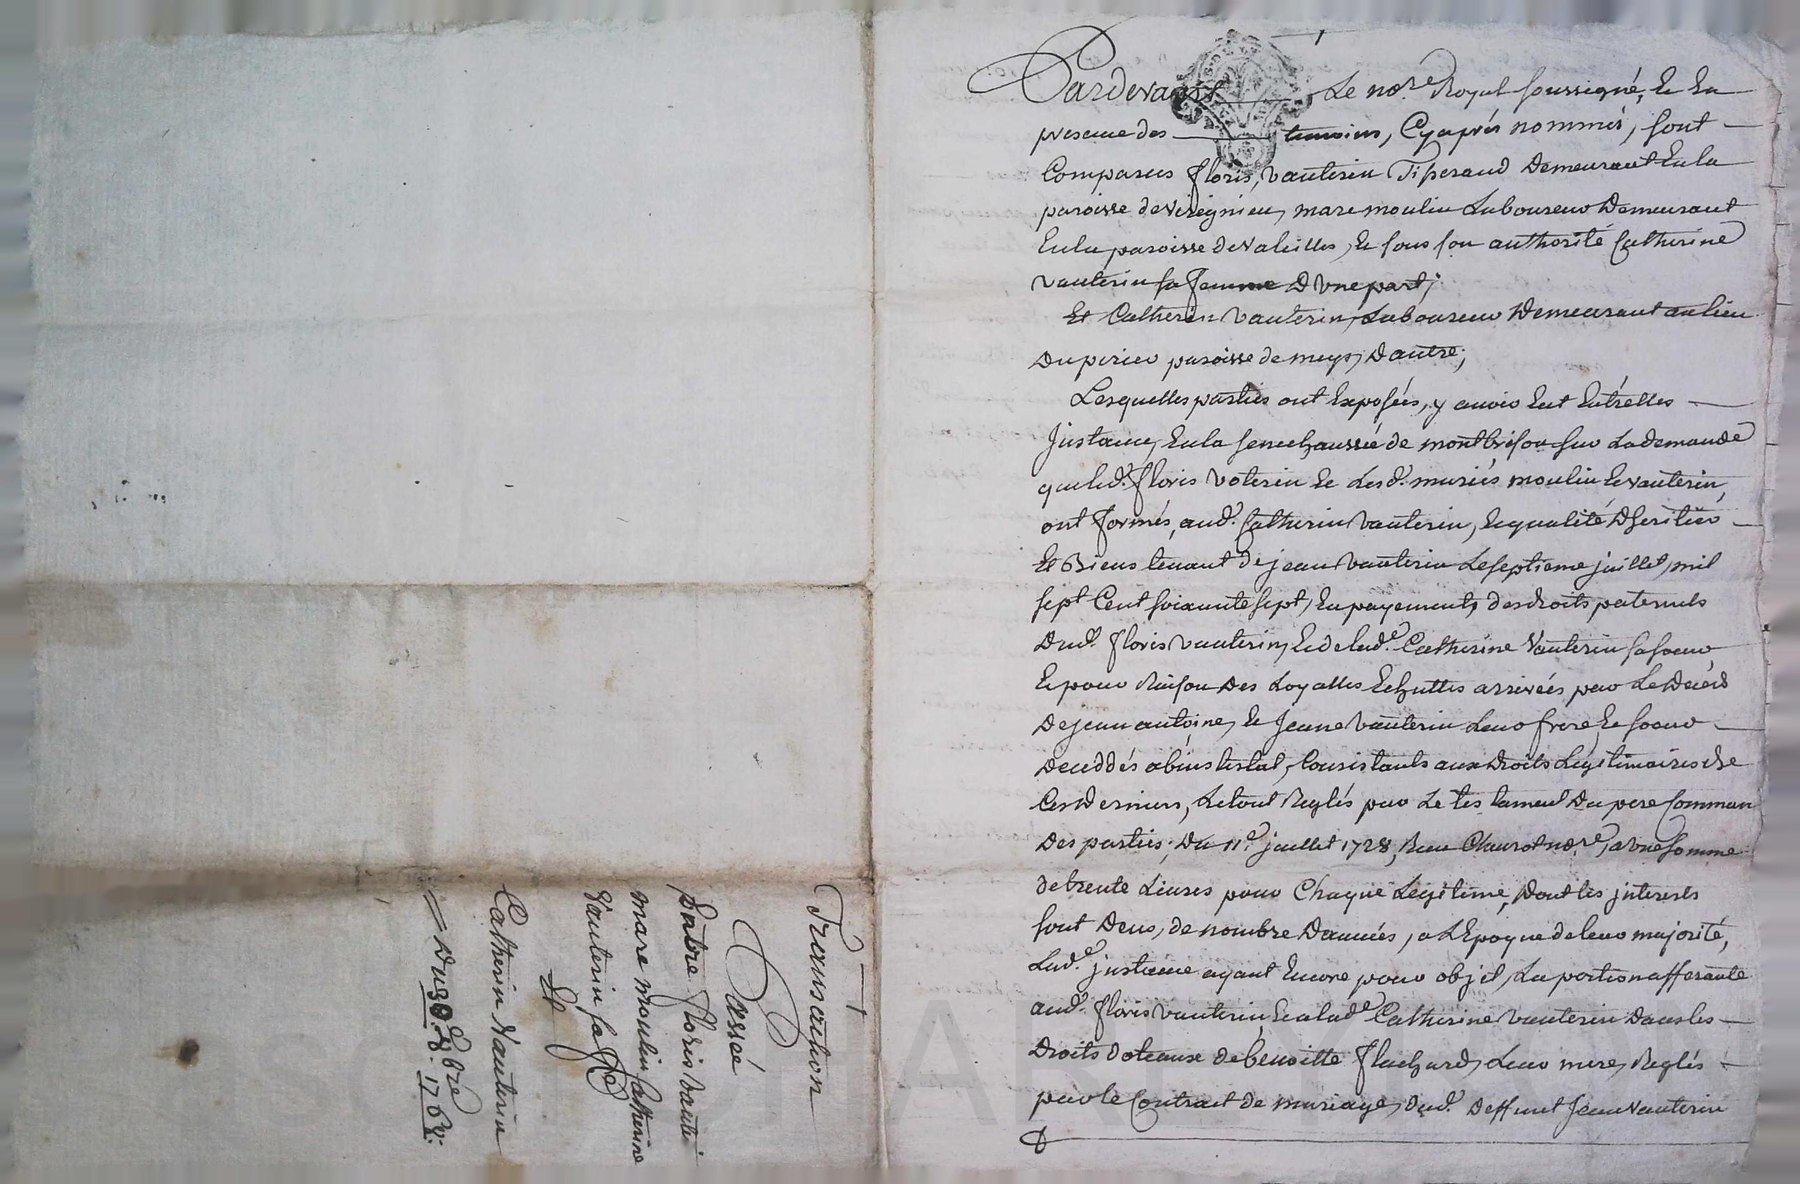 Pardevant Le no.re Royal soussigné, Et En
presence des temoins, Cyaprés nommés, sont
Comparus floris, vauterin Tiserand Demeurant Enla
paroisse de virignieu, marc moulin Laboureur Demeurant
Enla paroisse de valeilles, Et sous son authorité Catherine
vauterin sa femme D'Une part;
Et Catherin Vauterin, Laboureur Demeurant au lieu
Du perier paroisse de meys, D'autre;
Lesquelles parties ont Exposées, y avoir Eut Entrelles
Instance, Enla senechaussée de montbrison sur La demande
que led. floris voterin Et Lesd. mariés moulin Et vauterin,
ont formés, aud. Catherin Vauterin, En qualité D'heritier
Et Biens tenant de jean Vauterin Le septieme juillet, mil
sept Cent soixante sept, En payements des droits paternels
Dud. floris vauterin, Et de lad.e Catherine Vauterin sa soeur,
Et pour Raison Des Loyalles Echuttes arrivées par Le Decés
De jean antoine, Et Jeane Vauterin Leur frere, Et soeur
Deceddés abins testat, Consistants aux Droits Legitimaires de
Ces Derniers, Le tout Reglés par Le testament Du pere Commun
Des parties, Du 11.e juillet 1728, Recu no.re, a Une somme
de trente Livres pour Chaque Legitime, Dont les interests
sont Deus, de nombre D'années, a L'Epoque de leur majorité,
Lad.e instance ayant Encore pour objet, La portion afferante
aud. floris vauterin, Et a lad.e Catherine vauterin Dans les
Droits doteaux de benoitte flachard, Leur mere, Reglés
par le Contract de mariage, dud. Deffunt Jean Vauterin
Transaction
Passée
Entre floris vauterin
marc moulin Catherine
Vauterin sa fe
Et
Catherin Vauterin
Du 30 8.bre 1768.